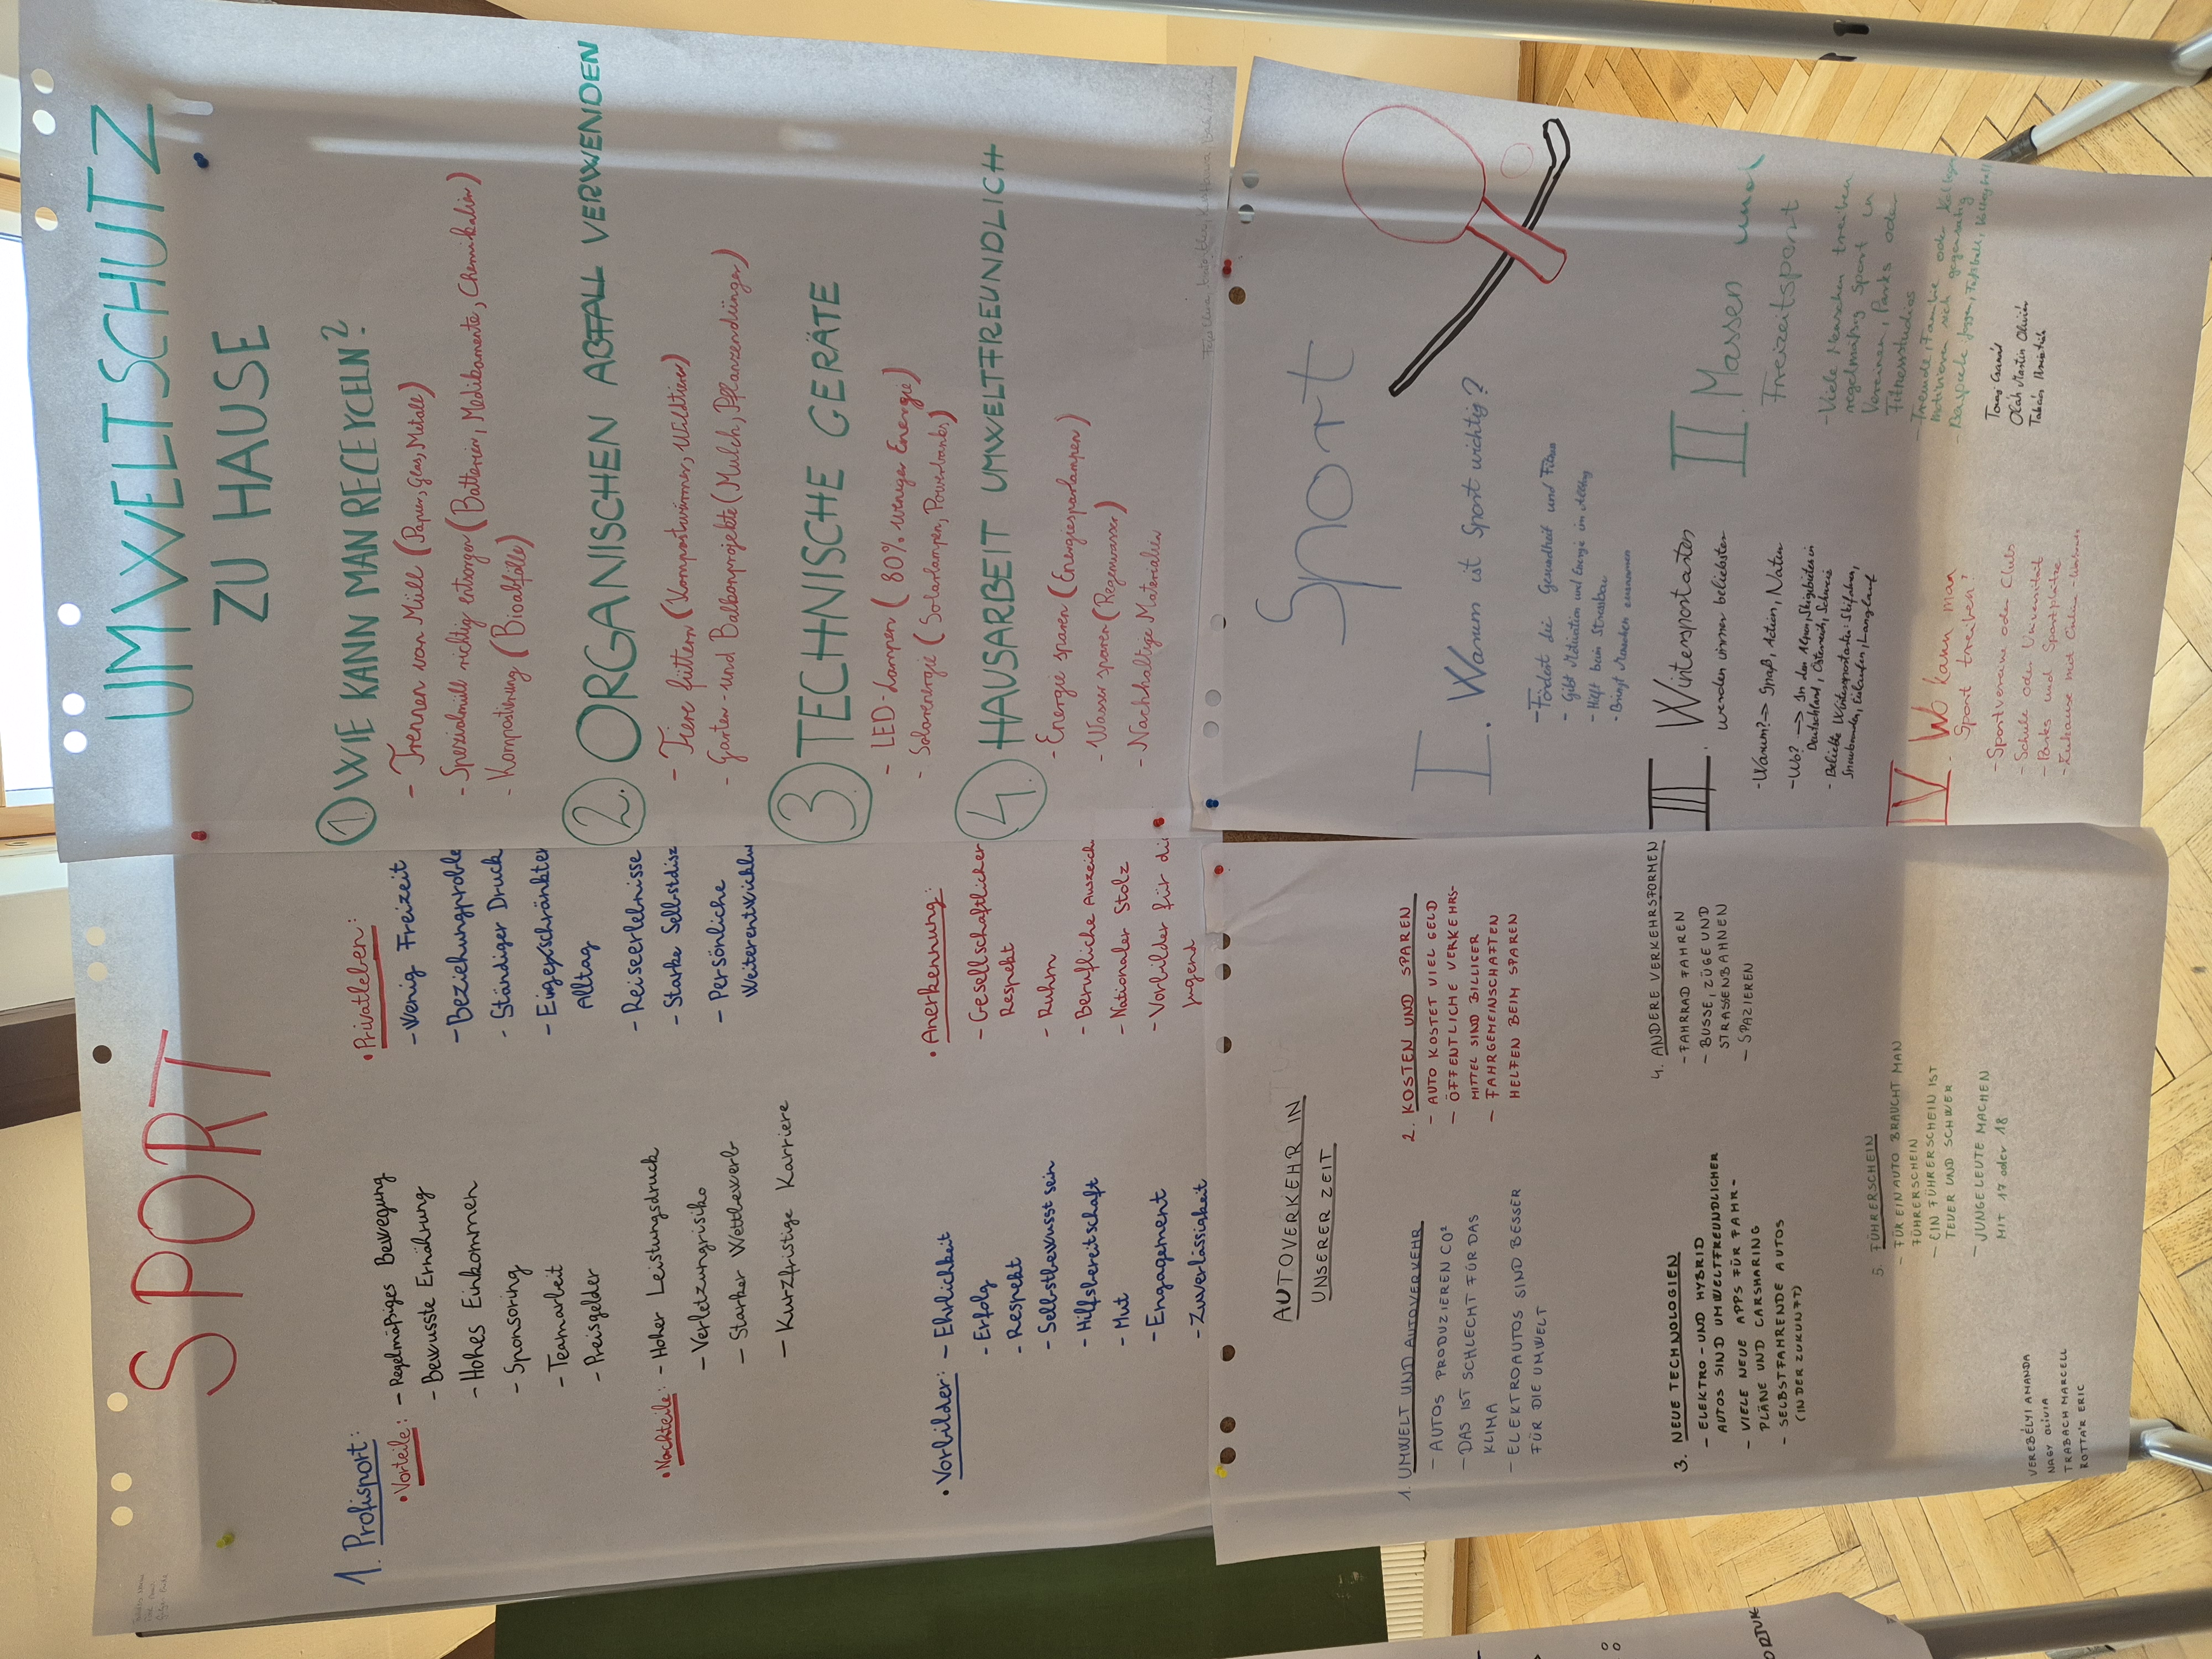 SPORT
1. Profisport:
• Vorteile: - Regelmäßiges Bewegung
- Bewusste Ernährung
- Hohes Einkommen
- Sponsoring
- Teamarbeit
- Preisgelder
• Nachteile: - Hoher Leistungsdruck
- Verletzungrisiko
- Starker Wettbewerb
- Kurzfristige Karriere
• Vorbilder: - Ehrlichkeit
- Erfolg
- Respekt
- Selbstbewusst sein
- Hilfsbereitschaft
- Mut
- Engagement
- Zuverlässigkeit
• Privatleben:
- Wenig Freizeit
- Beziehungproble
- Ständiger Druck
- Eingeschränkter
Alltag
- Reiseerlebnisse
- Starke Selbstdisz
- Persönliche
Weiterentwicklu
• Anerkennung:
- Gesellschaftlicher
Respekt
- Ruhm
- Berufliche Auszeich
- Nationaler Stolz
- Vorbilder für die
Jugend
UMWELTSCHUTZ
ZU HAUSE
1. WIE KANN MAN RECEYCELN?
- Trennen von Müll (Papier, Glas, Metale)
- Spezialmüll richtig entsorgen (Batterien, Medikamente, Chemikalien)
- Kompostierung (Bioabfälle)
2. ORGANISCHEN ABFALL VERWENDEN
- Tiere füttern (Kompostwürmer, Wildtiere)
- Garten- und Balkonprojekte (Mulch, Pflanzendünger)
3. TECHNISCHE GERÄTE
- LED-Lampen (80% weniger Energie)
- Solarenergie (Solarlampen, Powerbanks)
4. HAUSARBEIT UMWELTFREUNDLICH
- Energie sparen (Energiesparlampen)
- Wasser sparen (Regenwasser)
- Nachhaltige Materialien
AUTOVERKEHR IN
UNSERER ZEIT
1. UMWELT UND AUTOVERKEHR
- AUTOS PRODUZIEREN CO²
- DAS IST SCHLECHT FÜR DAS
KLIMA
- ELEKTROAUTOS SIND BESSER
FÜR DIE UMWELT
2. KOSTEN UND SPAREN
- AUTO KOSTET VIEL GELD
- ÖFFENTLICHE VERKEHRS-
MITTEL SIND BILLIGER
- FAHRGEMEINSCHAFTEN
HELFEN BEIM SPAREN
3. NEUE TECHNOLOGIEN
- ELEKTRO- UND HYBRID
AUTOS SIND UMWELTFREUNDLICHER
- VIELE NEUE APPS FÜR FAHR-
PLÄNE UND CARSHARING
- SELBSTFAHRENDE AUTOS
(IN DER ZUKUNFT)
4. ANDERE VERKEHRSFORMEN
- FAHRRAD FAHREN
- BUSSE, ZÜGE UND
STRASSENBAHNEN
- SPAZIEREN
5. FÜHRERSCHEIN
- FÜR EIN AUTO BRAUCHT MAN
FÜHRERSCHEIN
- EIN FÜHRERSCHEIN IST
TEUER UND SCHWER
- JUNGE LEUTE MACHEN
MIT 17 oder 18
VEREBÉLYI AMANDA
NAGY OLÍVIA
TRABACH MARCELL
ROTTÁR ERIC
Sport
I. Warum ist Sport wichtig?
- Fördert die Gesundheit und Fitness
- Gibt Motivation und Energie im Alltag
- Hilft beim Stressabbau
- Bringt Menschen zusammen
II. Massen und
Freizeitsport
- Viele Menschen treiben
regelmäßig Sport in
Vereinen, Parks oder
Fitnessstudios
- Freunde, Familie oder Kollegen
motivieren sich gegenseitig
III. Wintersportarten
werden immer beliebter
- Warum? → Spaß, Action, Natur
- Wo? → In den Alpen, Skigebieten in
Deutschland, Österreich, Schweiz
- Beliebte Wintersportarten: Skifahren,
Snowboarden, Eislaufen, Langlauf
IV. Wo kann man
Sport treiben?
- Sportvereine oder Clubs
- Schule oder Universität
- Parks und Sportplätze
- Zuhause mit Online-
Oláh Martin Olivér
Takács